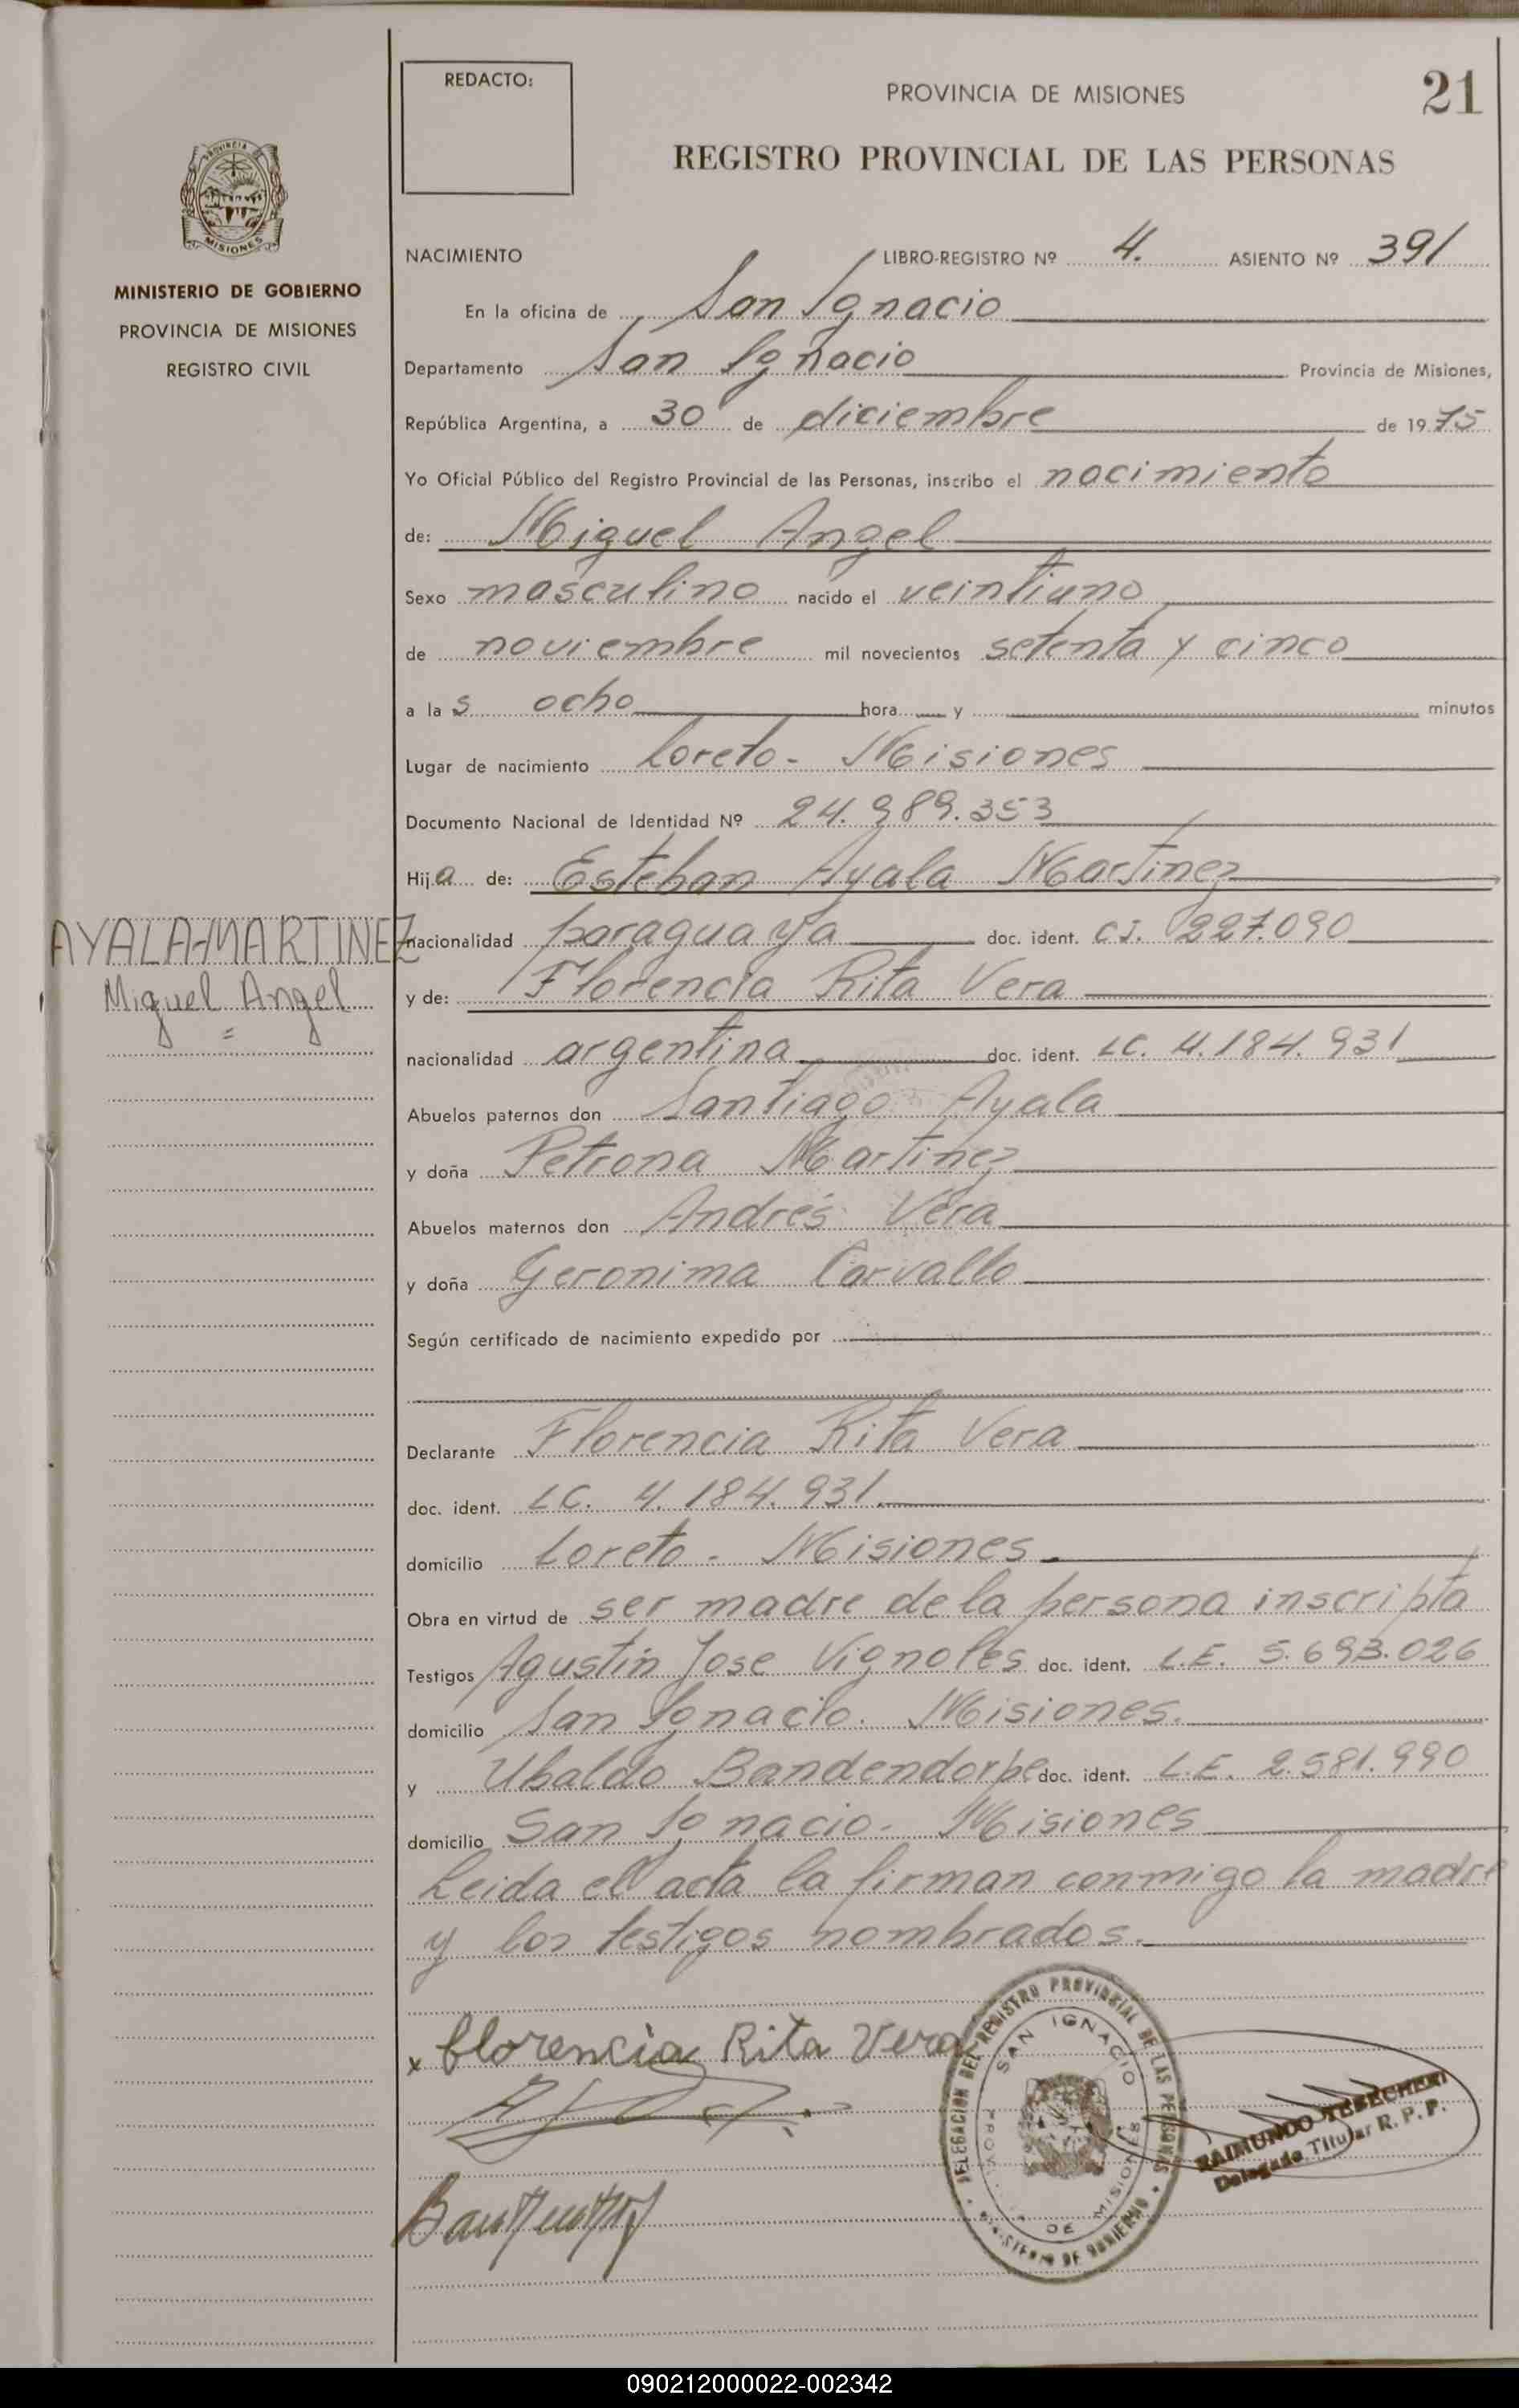 REDACTO:
PROVINCIA DE MISIONES
21
REGISTRO PROVINCIAL DE LAS PERSONAS
PROVINCIA
MISIONES
MINISTERIO DE GOBIERNO
PROVINCIA DE MISIONES
REGISTRO CIVIL
NACIMIENTO LIBRO-REGISTRO Nº 4. ASIENTO Nº 391
En la oficina de San Ignacio
Departamento San Ignacio Provincia de Misiones,
República Argentina, a 30 de diciembre de 1975
Yo Oficial Público del Registro Provincial de las Personas, inscribo el nacimiento
de: Miguel Angel
Sexo masculino nacido el veintiuno
de noviembre mil novecientos setenta y cinco
a las ocho hora y minutos
Lugar de nacimiento Loreto - Misiones
Documento Nacional de Identidad Nº 24.989.353
Hija de: Esteban Ayala Martinez
AYALA-MARTINEZ
Miguel Angel
nacionalidad paraguaya doc. ident. CI. 227.090
y de: Florencia Rita Vera
nacionalidad argentina doc. ident. LC. 4.184.931
Abuelos paternos don Santiago Ayala
y doña Petrona Martinez
Abuelos maternos don Andrés Vera
y doña Geronima Carvallo
Según certificado de nacimiento expedido por
Declarante Florencia Rita Vera
doc. ident. LC. 4.184.931
domicilio Loreto - Misiones.
Obra en virtud de ser madre de la persona inscripta
Testigos Agustin Jose Vignoles doc. ident. L.E. 5.693.026
domicilio San Ignacio. Misiones.
y Ubaldo Bandendorpe doc. ident. L.E. 2.581.990
domicilio San Ignacio - Misiones
Leida el acta la firman conmigo la madre
y los testigos nombrados.
x florencia Rita Vera
DELEGACION DEL REGISTRO PROVINCIAL DE LAS PERSONAS
SAN IGNACIO
DE MISIONES
MINISTERIO DE GOBIERNO
RAIMUNDO
Delegado Titular R. P. P.
090212000022-002342